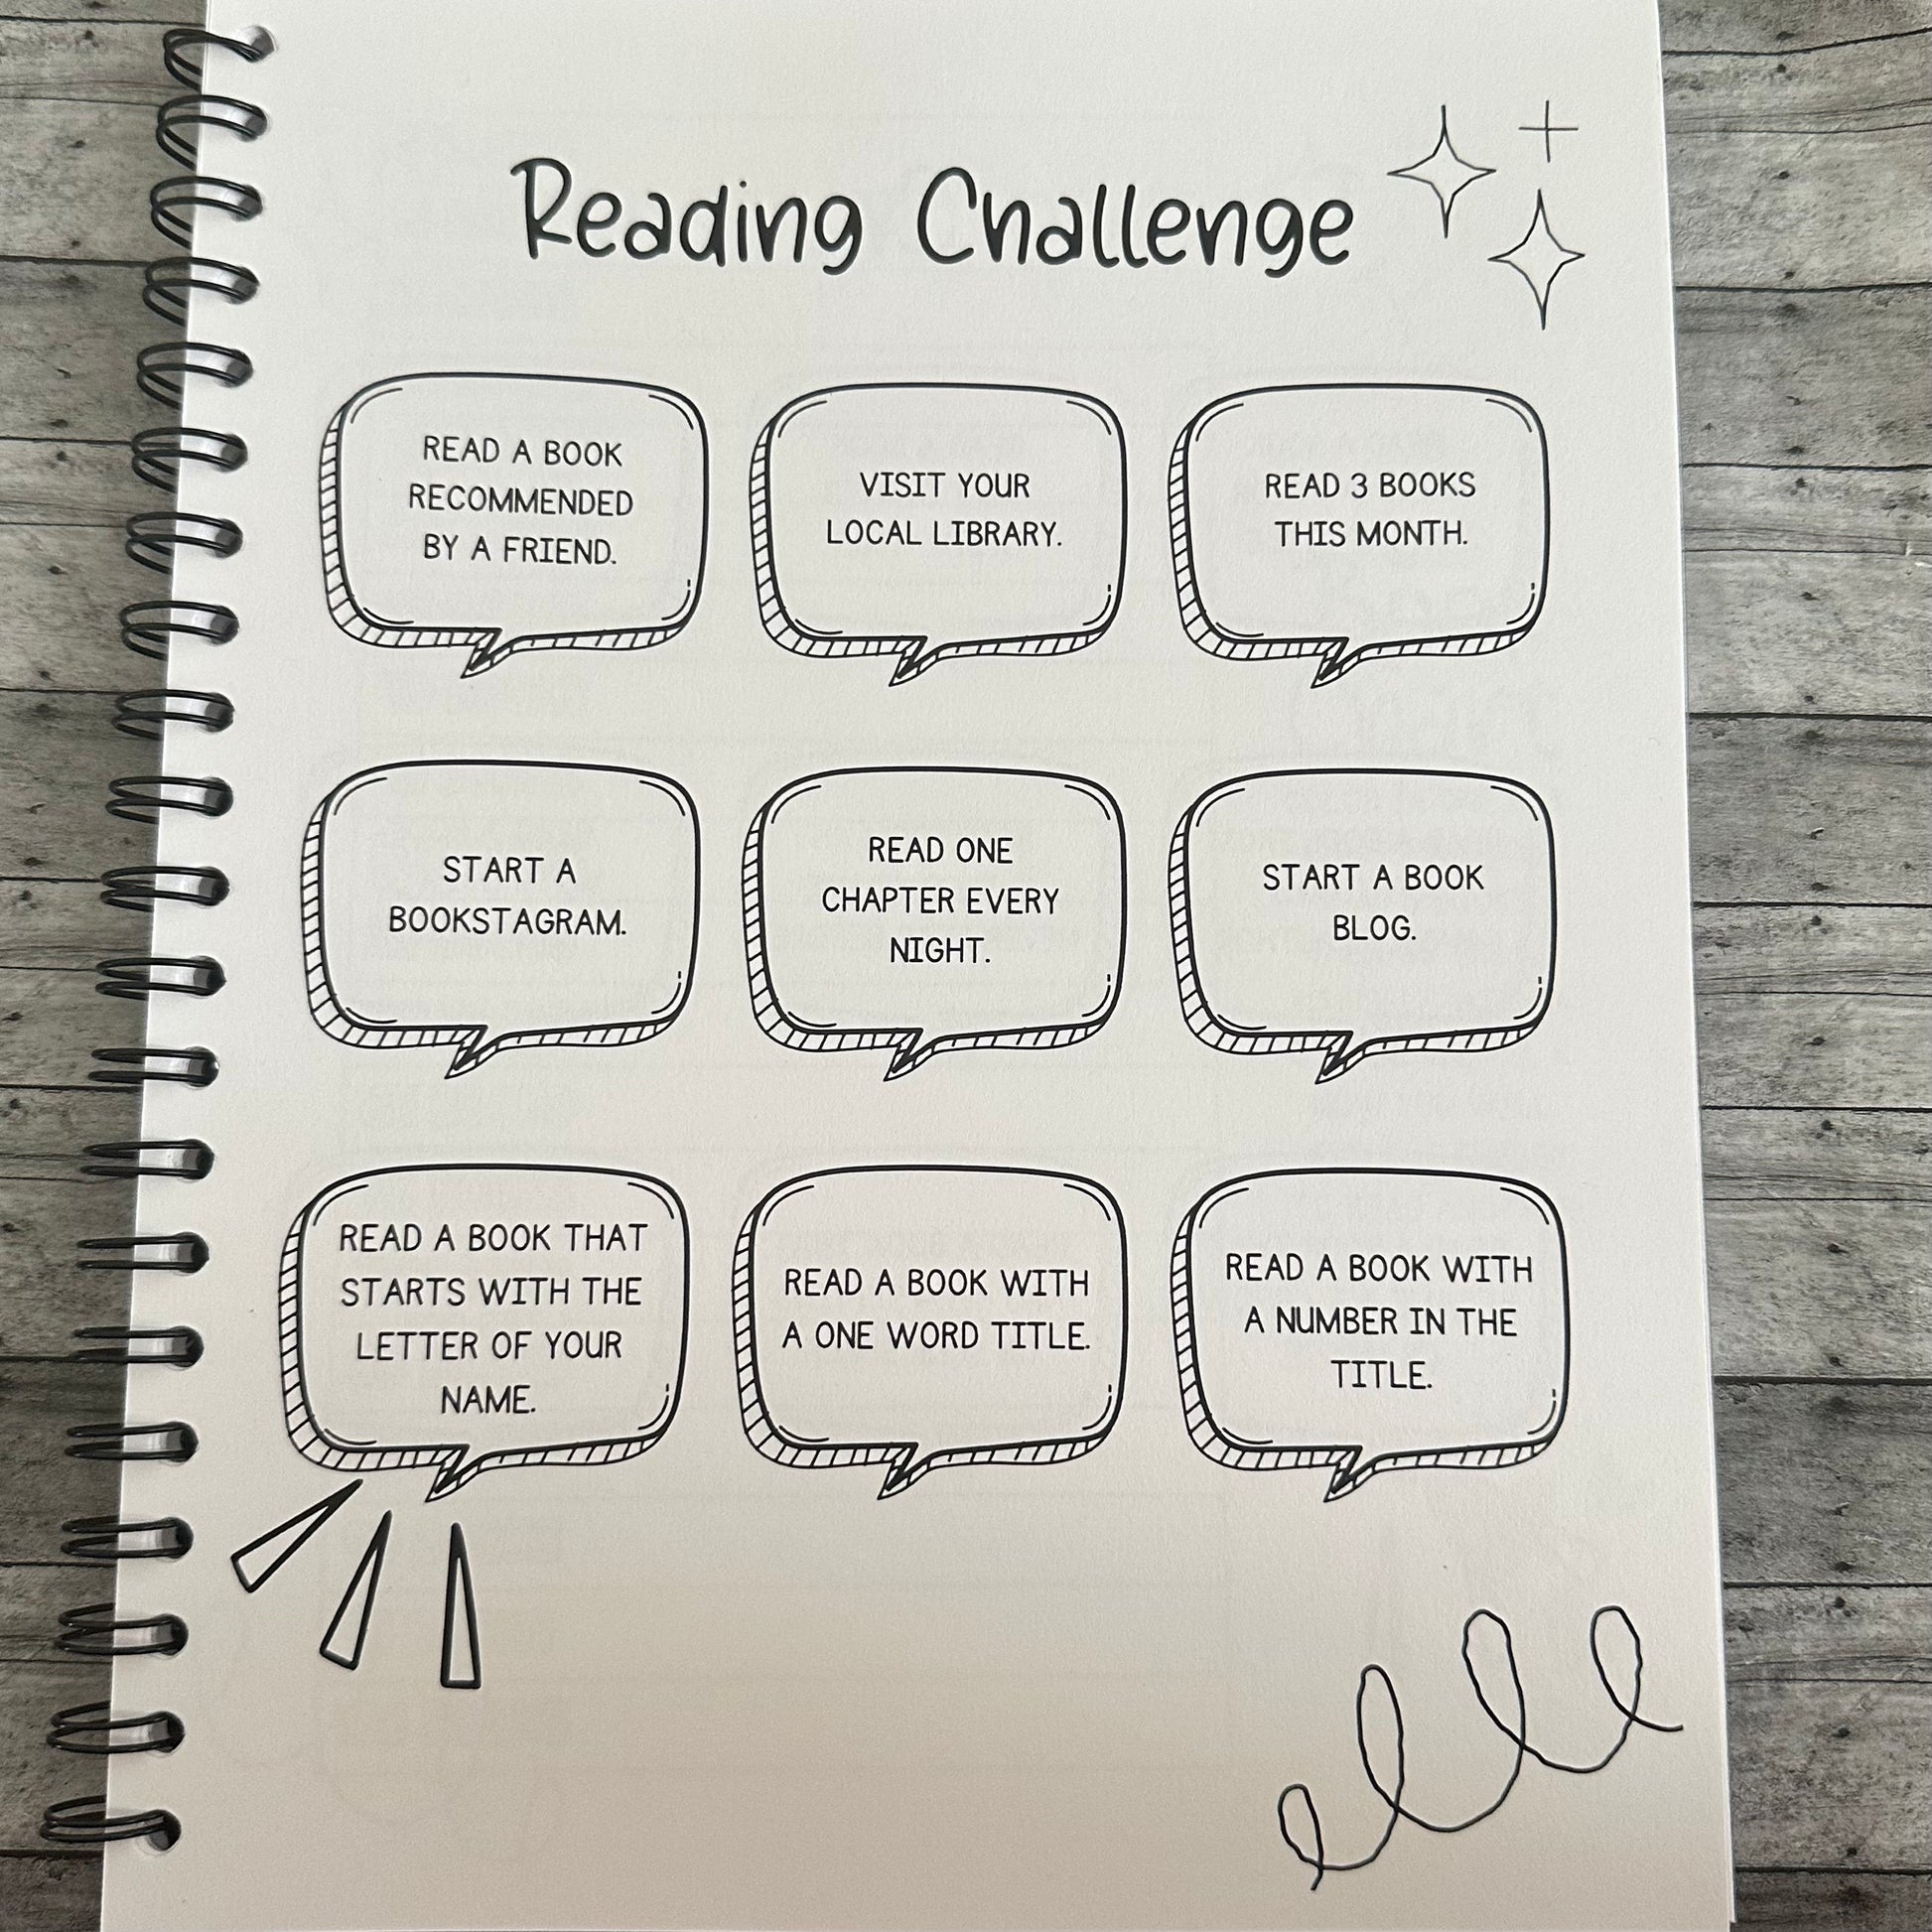 Reading Challenge
READ A BOOK
RECOMMENDED
BY A FRIEND.
VISIT YOUR
LOCAL LIBRARY.
READ 3 BOOKS
THIS MONTH.
START A
BOOKSTAGRAM.
READ ONE
CHAPTER EVERY
NIGHT.
START A BOOK
BLOG.
READ A BOOK THAT
STARTS WITH THE
LETTER OF YOUR
NAME.
READ A BOOK WITH
A ONE WORD TITLE.
READ A BOOK WITH
A NUMBER IN THE
TITLE.